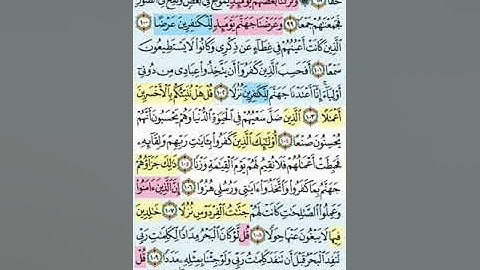 حَقًّا ۞ وَتَرَكْنَا بَعْضَهُمْ يَوْمَئِذٍ يَمُوجُ فِي بَعْضٍ وَنُفِخَ فِي الصُّورِ
فَجَمَعْنَٰهُمْ جَمْعًا ٩٩ وَعَرَضْنَا جَهَنَّمَ يَوْمَئِذٍ لِّلْكَٰفِرِينَ عَرْضًا ١٠٠
الَّذِينَ كَانَتْ أَعْيُنُهُمْ فِي غِطَآءٍ عَن ذِكْرِي وَكَانُوا لَا يَسْتَطِيعُونَ
سَمْعًا ١٠١ أَفَحَسِبَ الَّذِينَ كَفَرُوا أَن يَتَّخِذُوا عِبَادِي مِن دُونِي
أَوْلِيَآءَ إِنَّآ أَعْتَدْنَا جَهَنَّمَ لِلْكَٰفِرِينَ نُزُلًا ١٠٢ قُلْ هَلْ نُنَبِّئُكُم بِالْأَخْسَرِينَ
أَعْمَٰلًا ١٠٣ الَّذِينَ ضَلَّ سَعْيُهُمْ فِي الْحَيَوٰةِ الدُّنْيَا وَهُمْ يَحْسَبُونَ أَنَّهُمْ
يُحْسِنُونَ صُنْعًا ١٠٤ أُولَٰٓئِكَ الَّذِينَ كَفَرُوا بِـَٔايَٰتِ رَبِّهِمْ وَلِقَآئِهِ
فَحَبِطَتْ أَعْمَٰلُهُمْ فَلَا نُقِيمُ لَهُمْ يَوْمَ الْقِيَٰمَةِ وَزْنًا ١٠٥ ذَٰلِكَ جَزَآؤُهُمْ
جَهَنَّمُ بِمَا كَفَرُوا وَاتَّخَذُوٓا ءَايَٰتِي وَرُسُلِي هُزُوًا ١٠٦ إِنَّ الَّذِينَ ءَامَنُوا
وَعَمِلُوا الصَّٰلِحَٰتِ كَانَتْ لَهُمْ جَنَّٰتُ الْفِرْدَوْسِ نُزُلًا ١٠٧ خَٰلِدِينَ
فِيهَا لَا يَبْغُونَ عَنْهَا حِوَلًا ١٠٨ قُل لَّوْ كَانَ الْبَحْرُ مِدَادًا لِّكَلِمَٰتِ رَبِّي
لَنَفِدَ الْبَحْرُ قَبْلَ أَن تَنفَدَ كَلِمَٰتُ رَبِّي وَلَوْ جِئْنَا بِمِثْلِهِ مَدَدًا ١٠٩ قُلْ